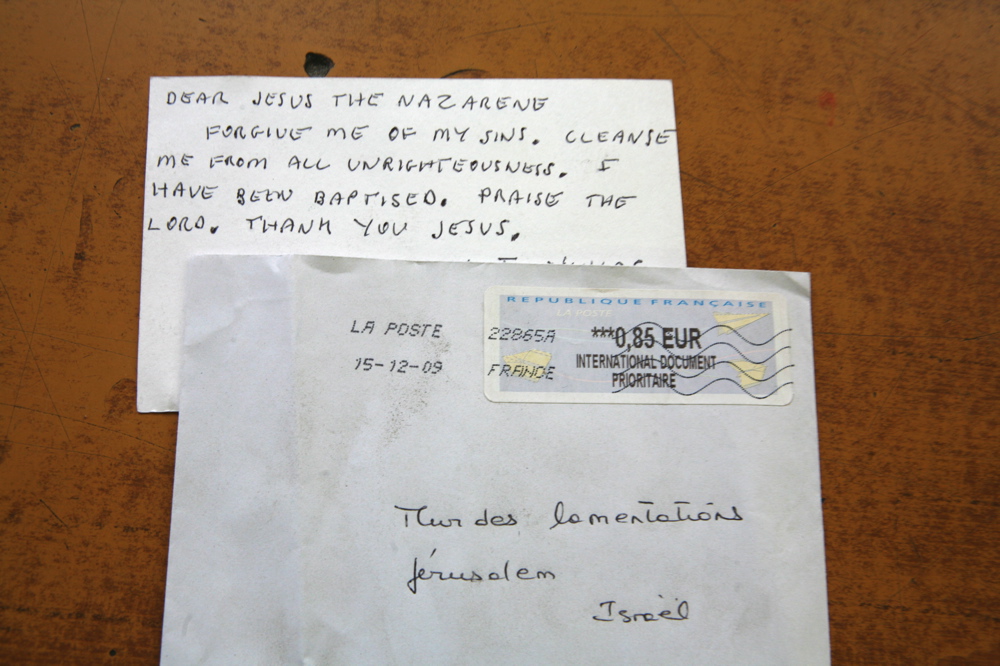 DEAR JESUS THE NAZARENE
FORGIVE ME OF MY SINS. CLEANSE
ME FROM ALL UNRIGHTEOUSNESS. I
HAVE BEEN BAPTISED. PRAISE THE
LORD. THANK YOU JESUS.
REPUBLIQUE FRANÇAISE
LA POSTE
LA POSTE 22865A
15-12-09 FRANCE
***0,85 EUR
INTERNATIONAL DOCUMENT
PRIORITAIRE
Mur des lamentations
Jérusalem
Israël